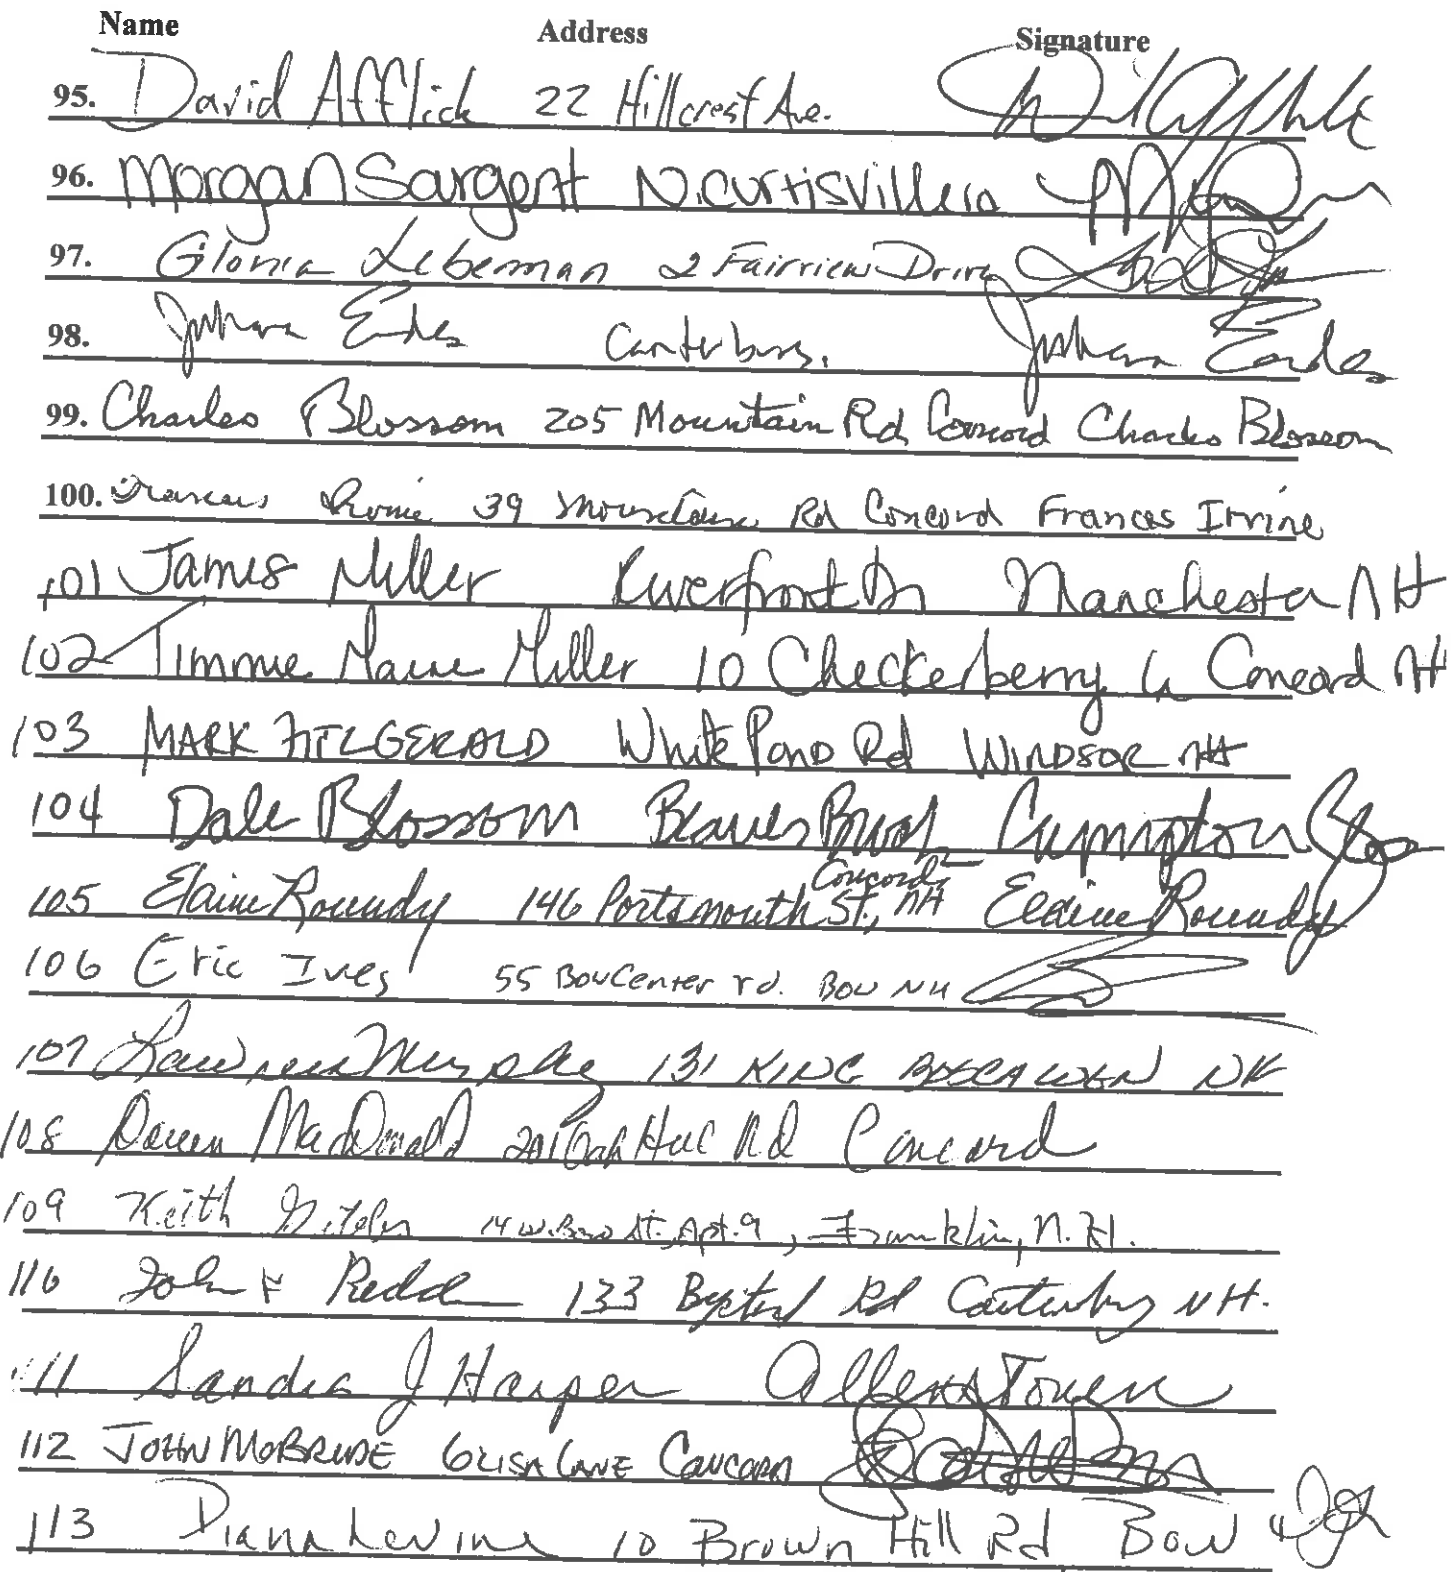 Name Address Signature
95. David Afflick 22 Hillcrest Ave.
96. Morgan Sargent N. Curtisville
97. Gloria Leberman 2 Fairview Drive
98. Eades Canterbury. Eades
99. Charles Blossom 205 Mountain Rd Concord Charles Blossom
100. Frances Irvine 39 Mountain Rd Concord Frances Irvine
101 James Miller Riverfront Dr Manchester NH
102 Timmie Marie Miller 10 Checkerberry Ln Concord NH
103 MARK FITZGERALD White Pond Rd WINDSOR NH
104 Dale Blossom
105 Elaine Roundy 146 Portsmouth St., Concord, NH Elaine Roundy
106 Eric Ives 55 Bow Center rd. Bow NH
107 Murphy 131 KING BOSCAWEN NH
108 MacDonald 201 Oak Hill Rd Concord
109 Keith 14 W. Bow St., Apt. 9, Franklin, N.H.
110 John F Redd 133 Rd Canterbury NH.
111 Sandra J Harper Allenstown
112 JOHN McBRIDE 6 LISA LANE CONCORD
113 Diana Levine 10 Brown Hill Rd Bow